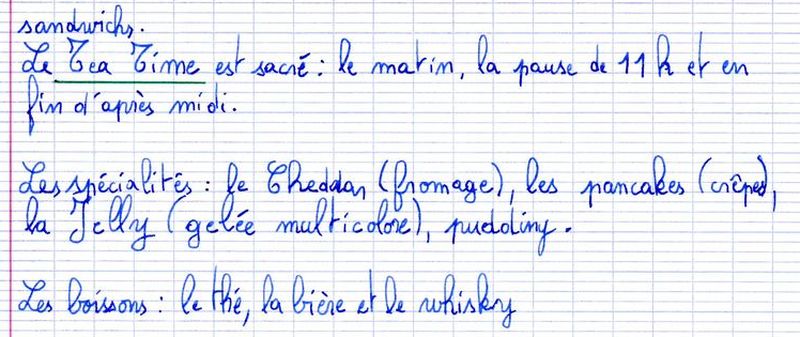 sandwichs.
Le Tea Time est sacré : le matin, la pause de 11 h et en
fin d'après midi.
Les spécialités : le Cheddar (fromage), les pancakes (crêpes),
la Jelly (gelée multicolore), pudding.
Les boissons : le thé, la bière et le whisky